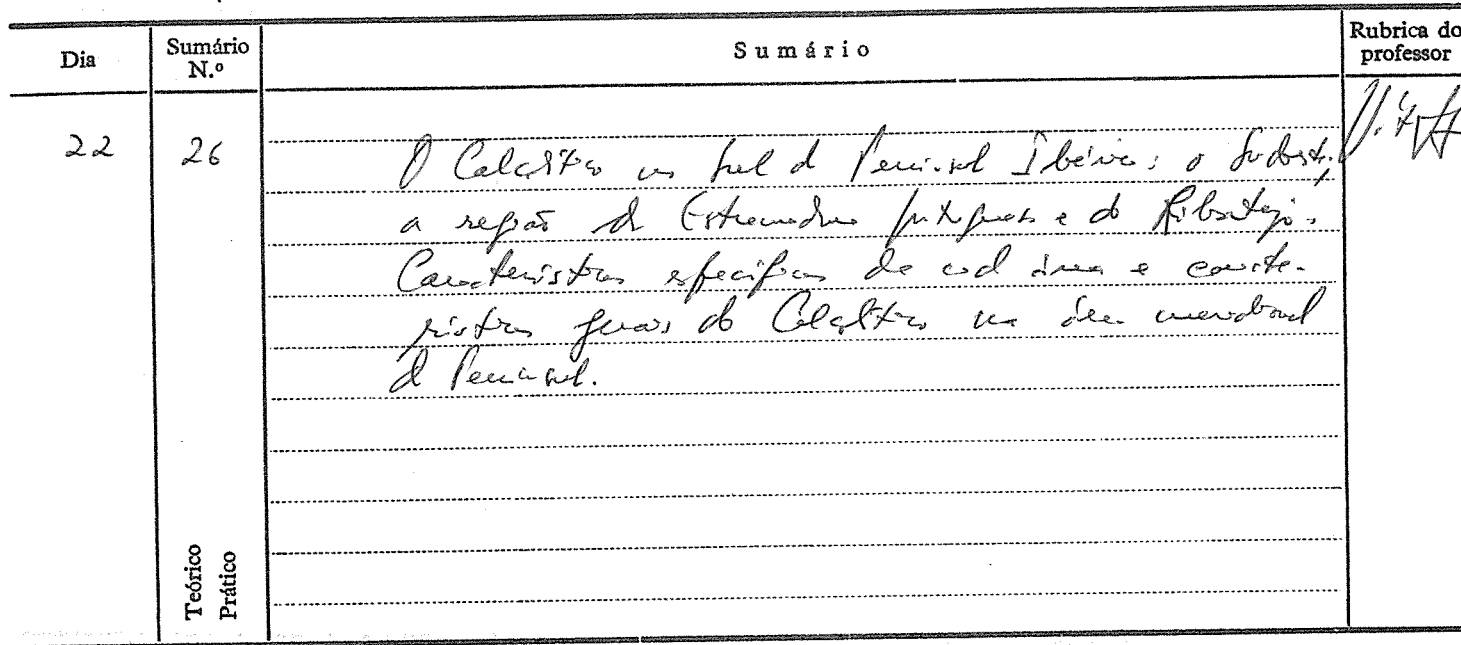 Dia Sumário N.º Sumário Rubrica do professor
22 26 O Calcolítico no sul da Península Ibérica: o Sudoeste,
a região da Estremadura portuguesa e do Ribatejo.
Características específicas de cada área e caracte-
rísticas gerais do Calcolítico na área meridional
da Península.
Teórico
Prático